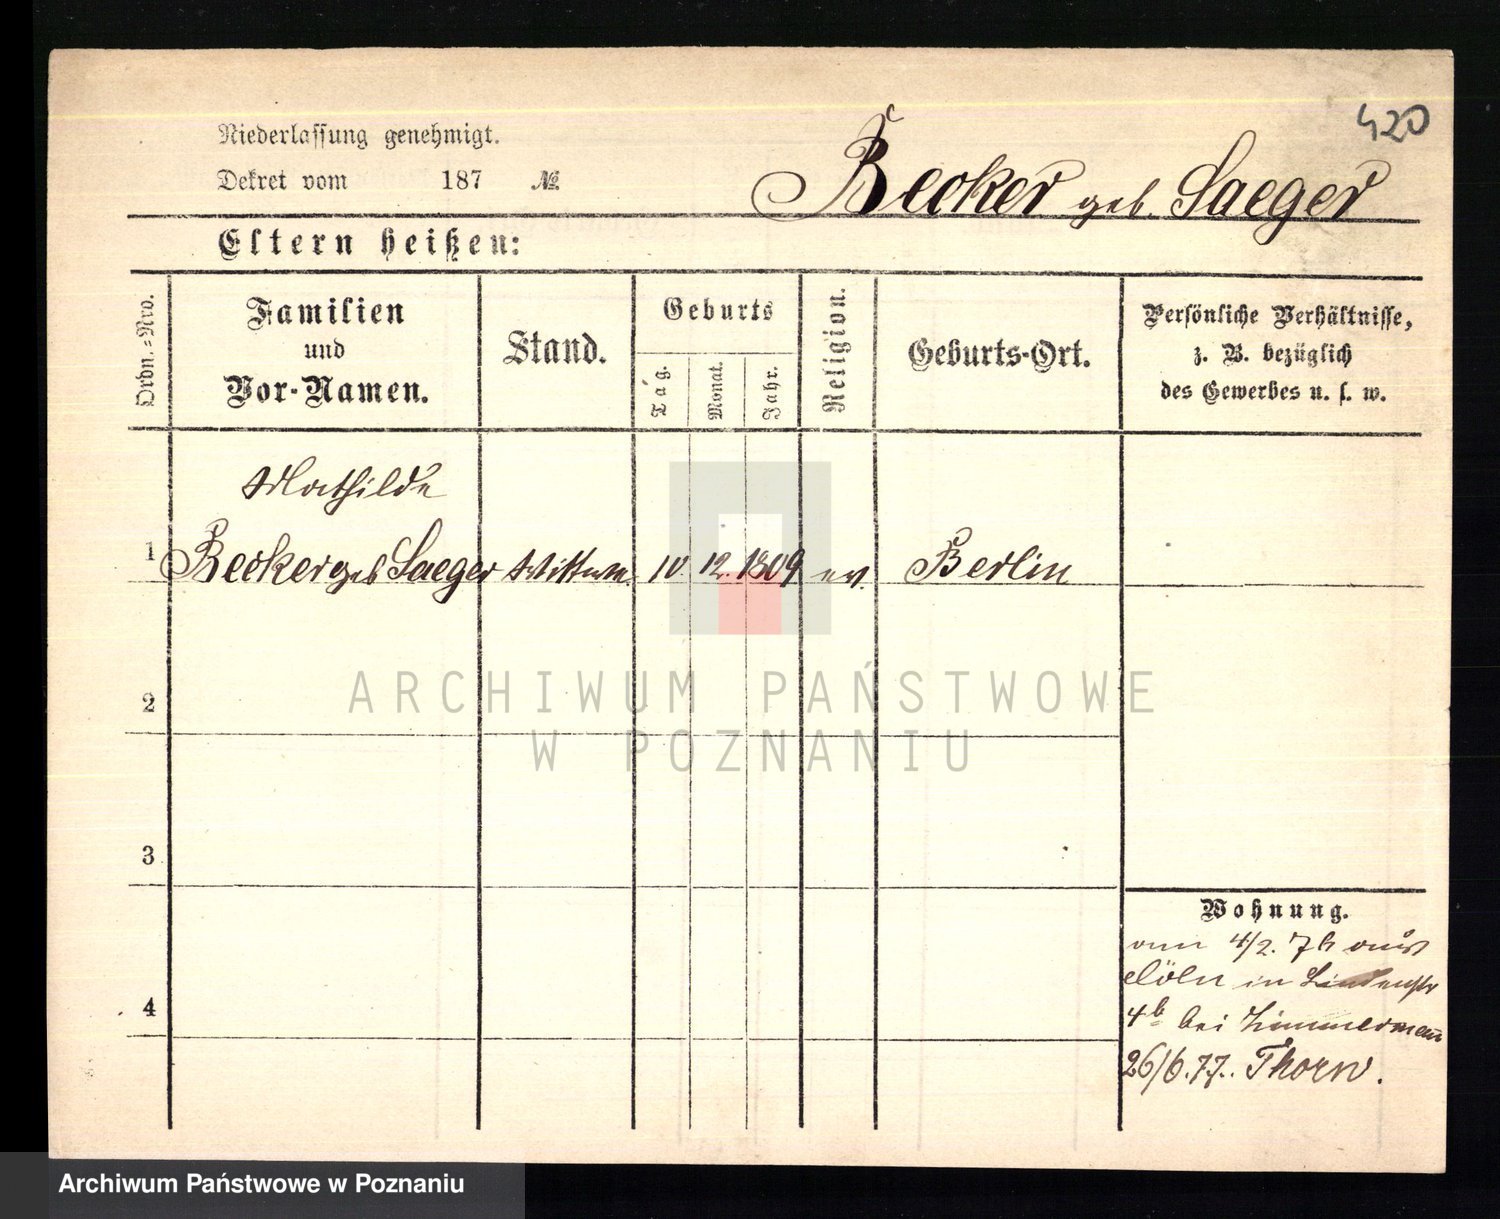 420
Niederlassung genehmigt.
Dekret vom 187 №
Becker geb. Saeger
Eltern heißen:
Ordn.=Nro.
Familien
und
Vor-Namen.
Stand.
Geburts
Tag.
Monat.
Jahr.
Religion.
Geburts-Ort.
Persönliche Verhältnisse,
z. B. bezüglich
des Gewerbes u. s. w.
Mathilde
1 Becker geb Saeger Wittwe 10. 12. 1809 ev. Berlin
2
3
4
ARCHIWUM PAŃSTWOWE
W POZNANIU
Wohnung.
4/2. 76 aus
Cöln in Lindenstr
4b bei Zimmermann
26/6.77. Thorn.
Archiwum Państwowe w Poznaniu